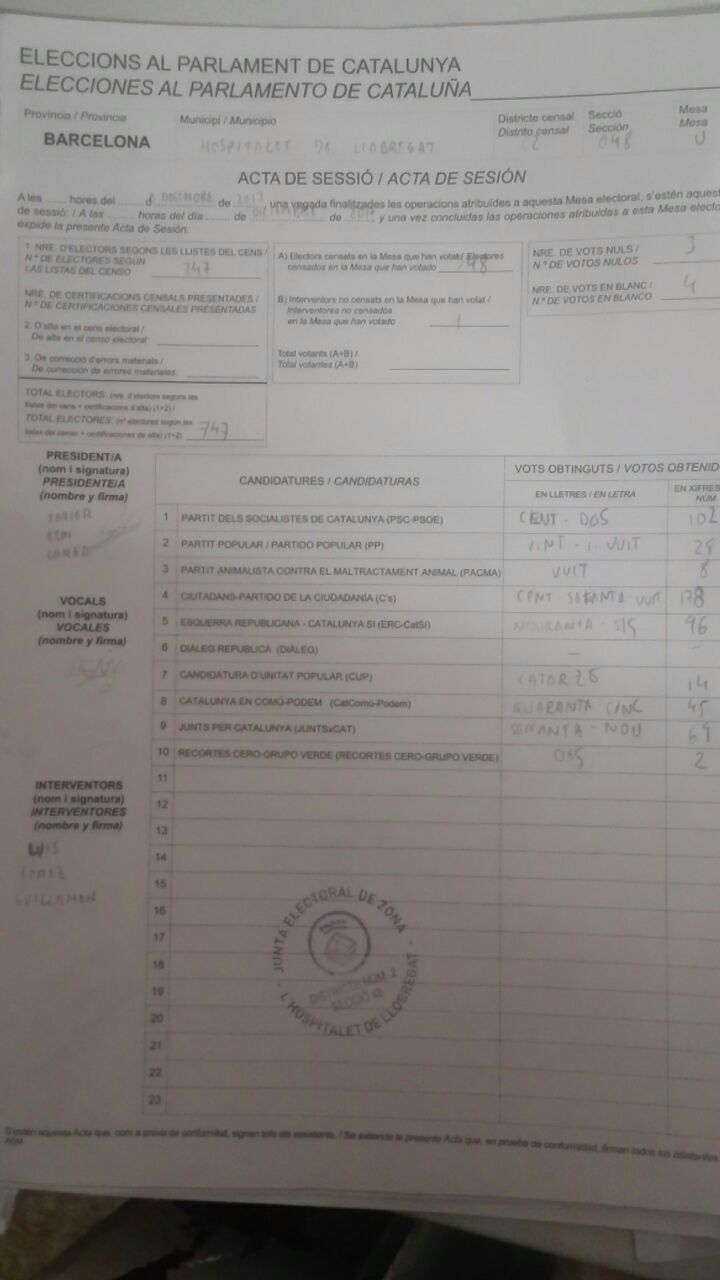 ELECCIONS AL PARLAMENT DE CATALUNYA
ELECCIONES AL PARLAMENTO DE CATALUÑA
Província / Provincia
Municipi / Municipio
Districte censal
Distrito censal
Secció
Sección
Mesa
Mesa
BARCELONA
HOSPITALET DE LLOBREGAT
02
048
U
ACTA DE SESSIÓ / ACTA DE SESIÓN
A les ...... hores del ...... d DESEMBRE de 2017 una vegada finalitzades les operacions atribuïdes a aquesta Mesa electoral, s'estén aquest
de sessió. / A las ...... horas del día ...... de DICIEMBRE de 2017 y una vez concluidas las operaciones atribuidas a esta Mesa electo
expide la presente Acta de Sesión:
1. NRE. D'ELECTORS SEGONS LES LLISTES DEL CENS /
N.º DE ELECTORES SEGÚN
LAS LISTAS DEL CENSO 747
NRE. DE CERTIFICACIONS CENSALS PRESENTADES /
N.º DE CERTIFICACIONES CENSALES PRESENTADAS
2. D'alta en el cens electoral /
De alta en el censo electoral:
3. De correcció d'errors materials /
De corrección de errores materiales:
TOTAL ELECTORS: (nre. d'electors segons les
llistes del cens + certificacions d'alta) (1+2) /
TOTAL ELECTORES: (nº electores según las
listas del censo + certificaciones de alta) (1+2) 747
A) Electors censats en la Mesa que han votat / Electores
censados en la Mesa que han votado
B) Interventors no censats en la Mesa que han votat /
Interventores no censados
en la Mesa que han votado 1
Total votants (A+B) /
Total votantes (A+B)
NRE. DE VOTS NULS /
N.º DE VOTOS NULOS 3
NRE. DE VOTS EN BLANC /
N.º DE VOTOS EN BLANCO 4
PRESIDENT/A
(nom i signatura)
PRESIDENTE/A
(nombre y firma)
VOCALS
(nom i signatura)
VOCALES
(nombre y firma)
INTERVENTORS
(nom i signatura)
INTERVENTORES
(nombre y firma)
LUIS
GOMEZ
GUILLAMON
CANDIDATURES / CANDIDATURAS
VOTS OBTINGUTS / VOTOS OBTENID
EN LLETRES / EN LETRA
EN XIFRES
NÚM
1 PARTIT DELS SOCIALISTES DE CATALUNYA (PSC-PSOE) CENT - DOS 102
2 PARTIT POPULAR / PARTIDO POPULAR (PP) VINT - I - VUIT 28
3 PARTIT ANIMALISTA CONTRA EL MALTRACTAMENT ANIMAL (PACMA) VUIT 8
4 CIUTADANS-PARTIDO DE LA CIUDADANÍA (C's) 178
5 ESQUERRA REPUBLICANA - CATALUNYA SÍ (ERC-CatSí) NOURANTA - SIS 96
6 DIÀLEG REPUBLICÀ (DIÀLEG) — -
7 CANDIDATURA D'UNITAT POPULAR (CUP) CATORZE 14
8 CATALUNYA EN COMÚ-PODEM (CatComú-Podem) QUARANTA - CINC 45
9 JUNTS PER CATALUNYA (JUNTSxCAT) SEIXANTA - NOU 69
10 RECORTES CERO-GRUPO VERDE (RECORTES CERO-GRUPO VERDE) DOS 2
11
12
13
14
15
16
17
18
19
20
21
22
23
JUNTA ELECTORAL DE ZONA
DISTRICTE NÚM. 2
SECCIÓ 48
L'HOSPITALET DE LLOBREGAT
S'estén aquesta Acta que, com a prova de conformitat, signen tots els assistents. / Se extiende la presente Acta que, en prueba de conformidad, firman todos los asistentes.